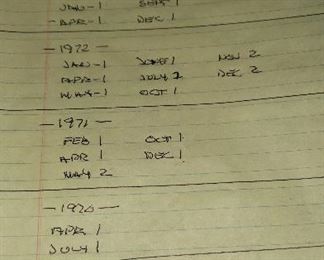 JAN-1 SEPT 1
-APR-1 DEC 1
-1972-
JAN-1 JUNE 1 NOV 2
APR-1 JULY 2 DEC 2
MAY-1 OCT 1
-1971-
FEB 1 OCT 1
APR 1 DEC 1
MAY 2
-1970-
APR 1
JULY 1